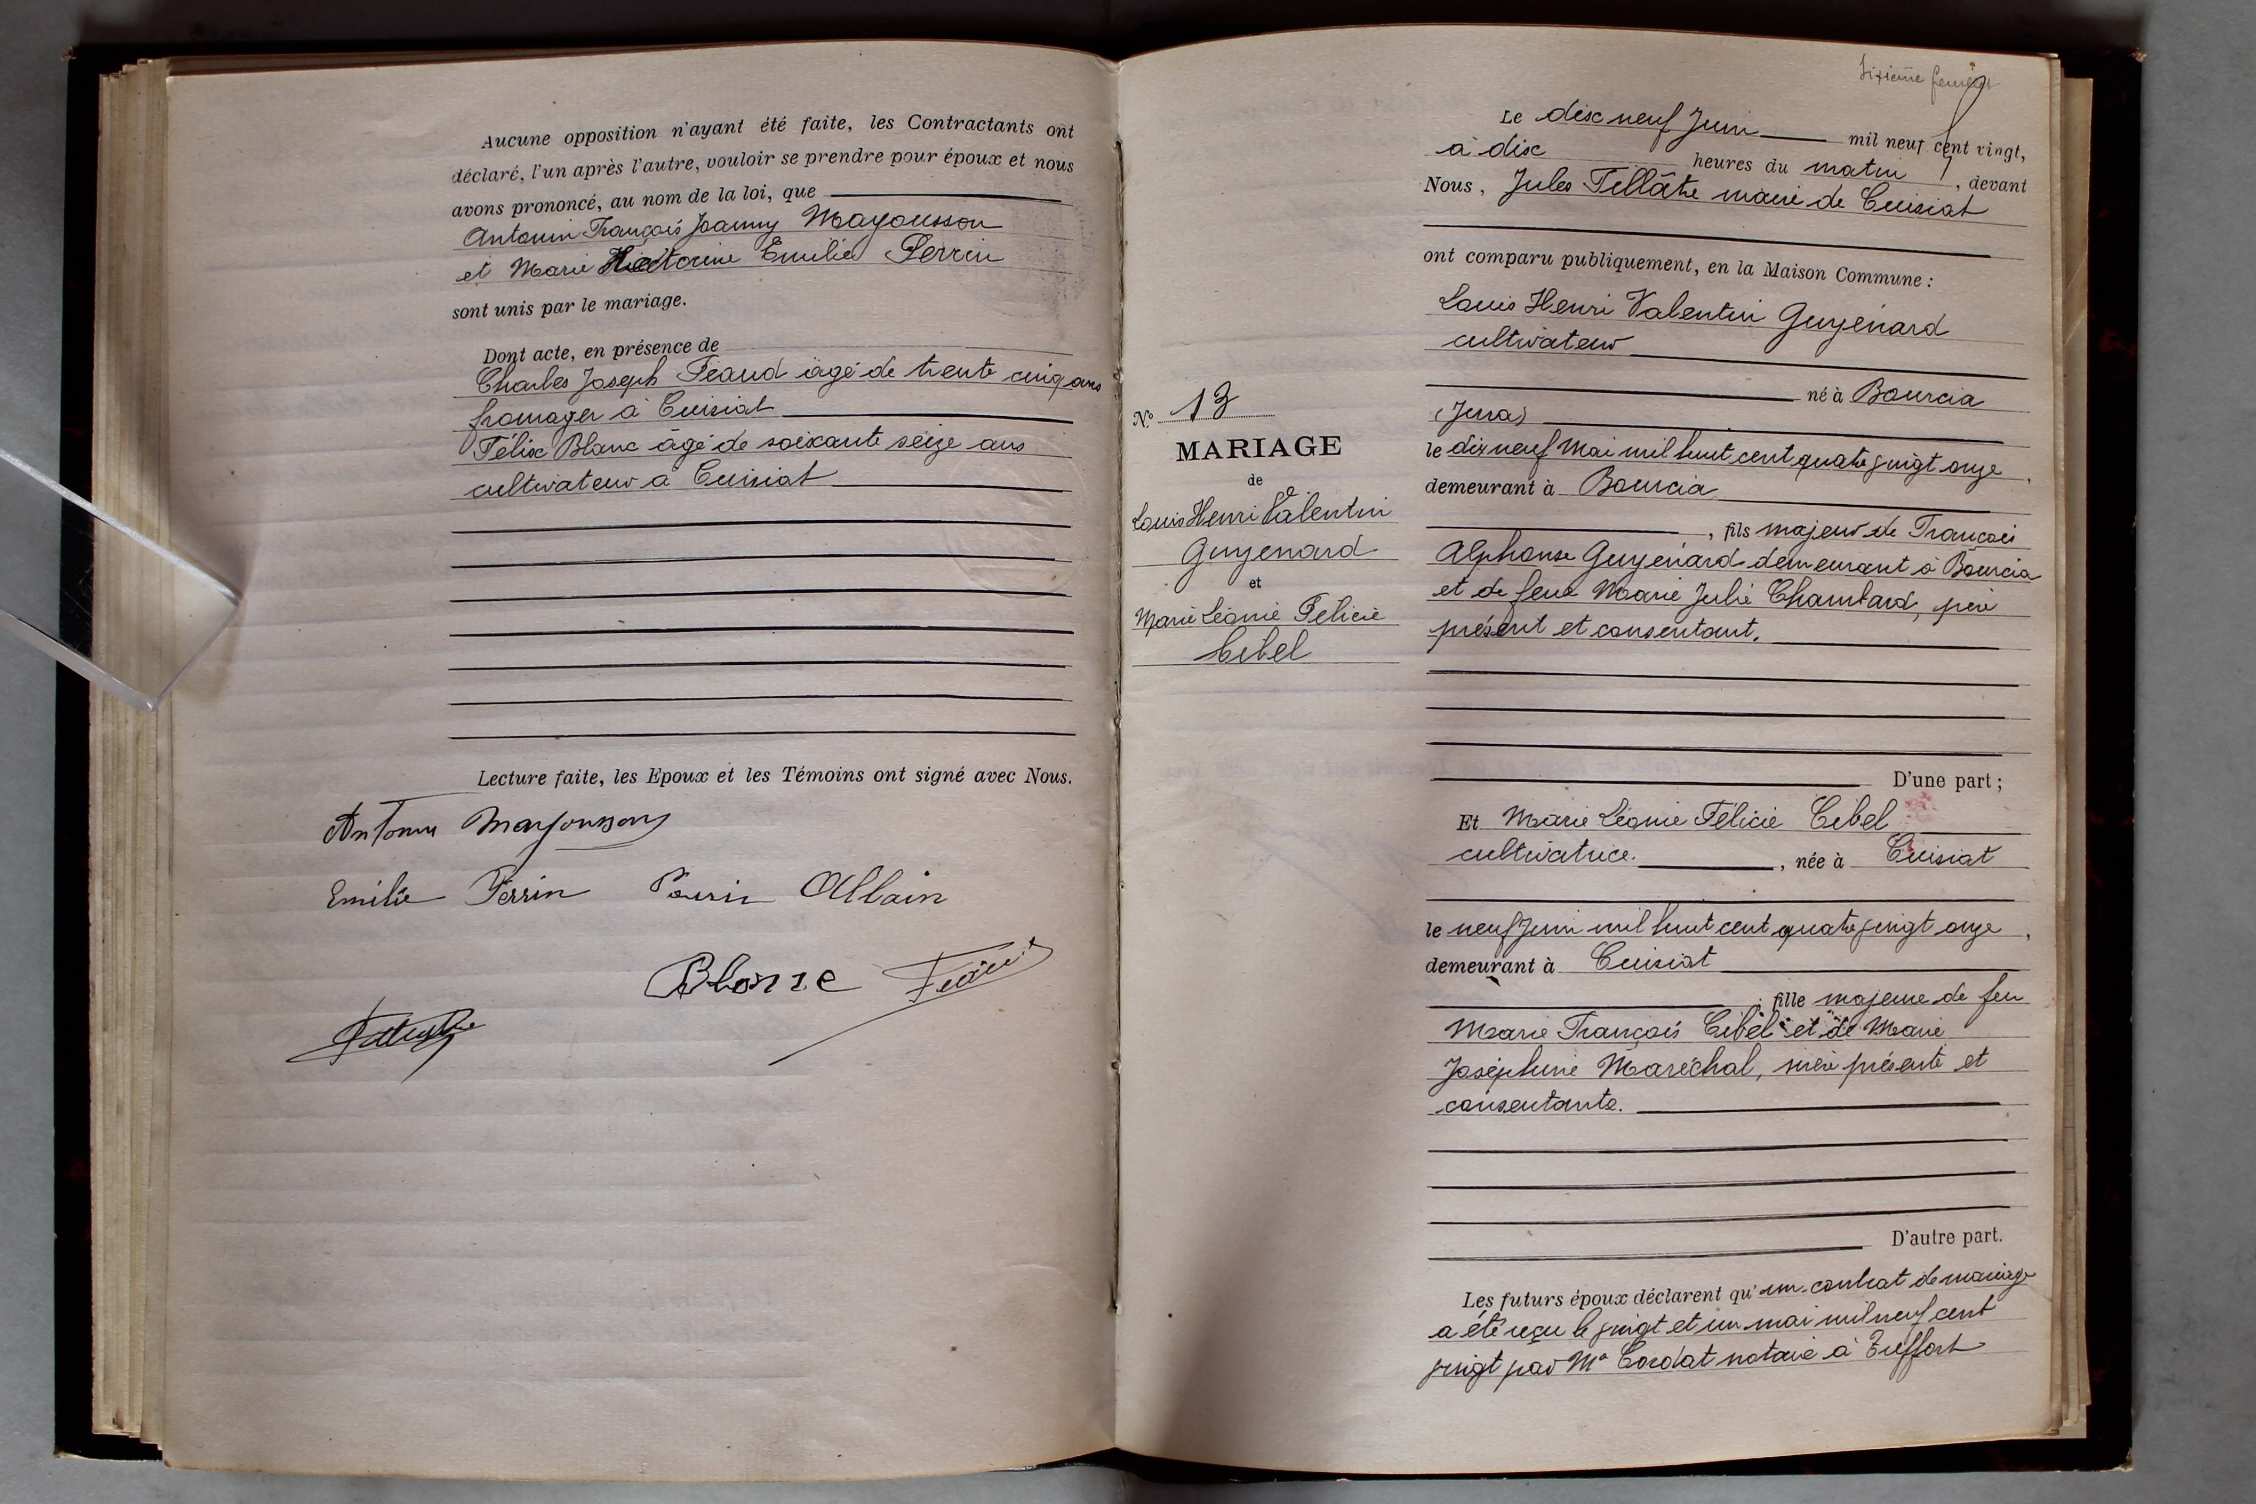 Aucune opposition n'ayant été faite, les Contractants ont
déclaré, l'un après l'autre, vouloir se prendre pour époux et nous
avons prononcé, au nom de la loi, que
Antonin François Joanny Mayousson
et Marie Emilie Perrin
sont unis par le mariage.
Dont acte, en présence de
Charles Joseph Feaud âgé de trente cinq ans
fromager à Cuisiat
Félix Blanc âgé de soixante seize ans
cultivateur à Cuisiat
Lecture faite, les Epoux et les Témoins ont signé avec Nous.
Antonin Mayousson
Emilie Perrin
Blanc
sixième feuillet
Le dix neuf Juin mil neuf cent vingt,
à dix heures du matin, devant
Nous, Jules maire de Cuisiat
ont comparu publiquement, en la Maison Commune :
Louis Henri Valentin Guyénard
cultivateur
né à Bourcia
(Jura)
le dix neuf Mai mil huit cent quatre vingt onze,
demeurant à Bourcia
, fils majeur de François
Alphonse Guyénard demeurant à Bourcia
et de feue Marie Julie Chambard, père
présent et consentant.
D'une part ;
Et Marie Léonie Félicie Cibel
cultivatrice. , née à Cuisiat
le neuf Juin mil huit cent quatre vingt onze,
demeurant à Cuisiat
, fille majeure de feu
Marie François Cibel et de Marie
Joséphine Maréchal, mère présente et
consentante.
D'autre part.
Les futurs époux déclarent qu'un contrat de mariage
a été reçu le vingt et un mai mil neuf cent
vingt par Me Cordat notaire à Treffort
No 13
MARIAGE
de
Louis Henri Valentin
Guyenard
et
Marie Léonie Félicie
Cibel